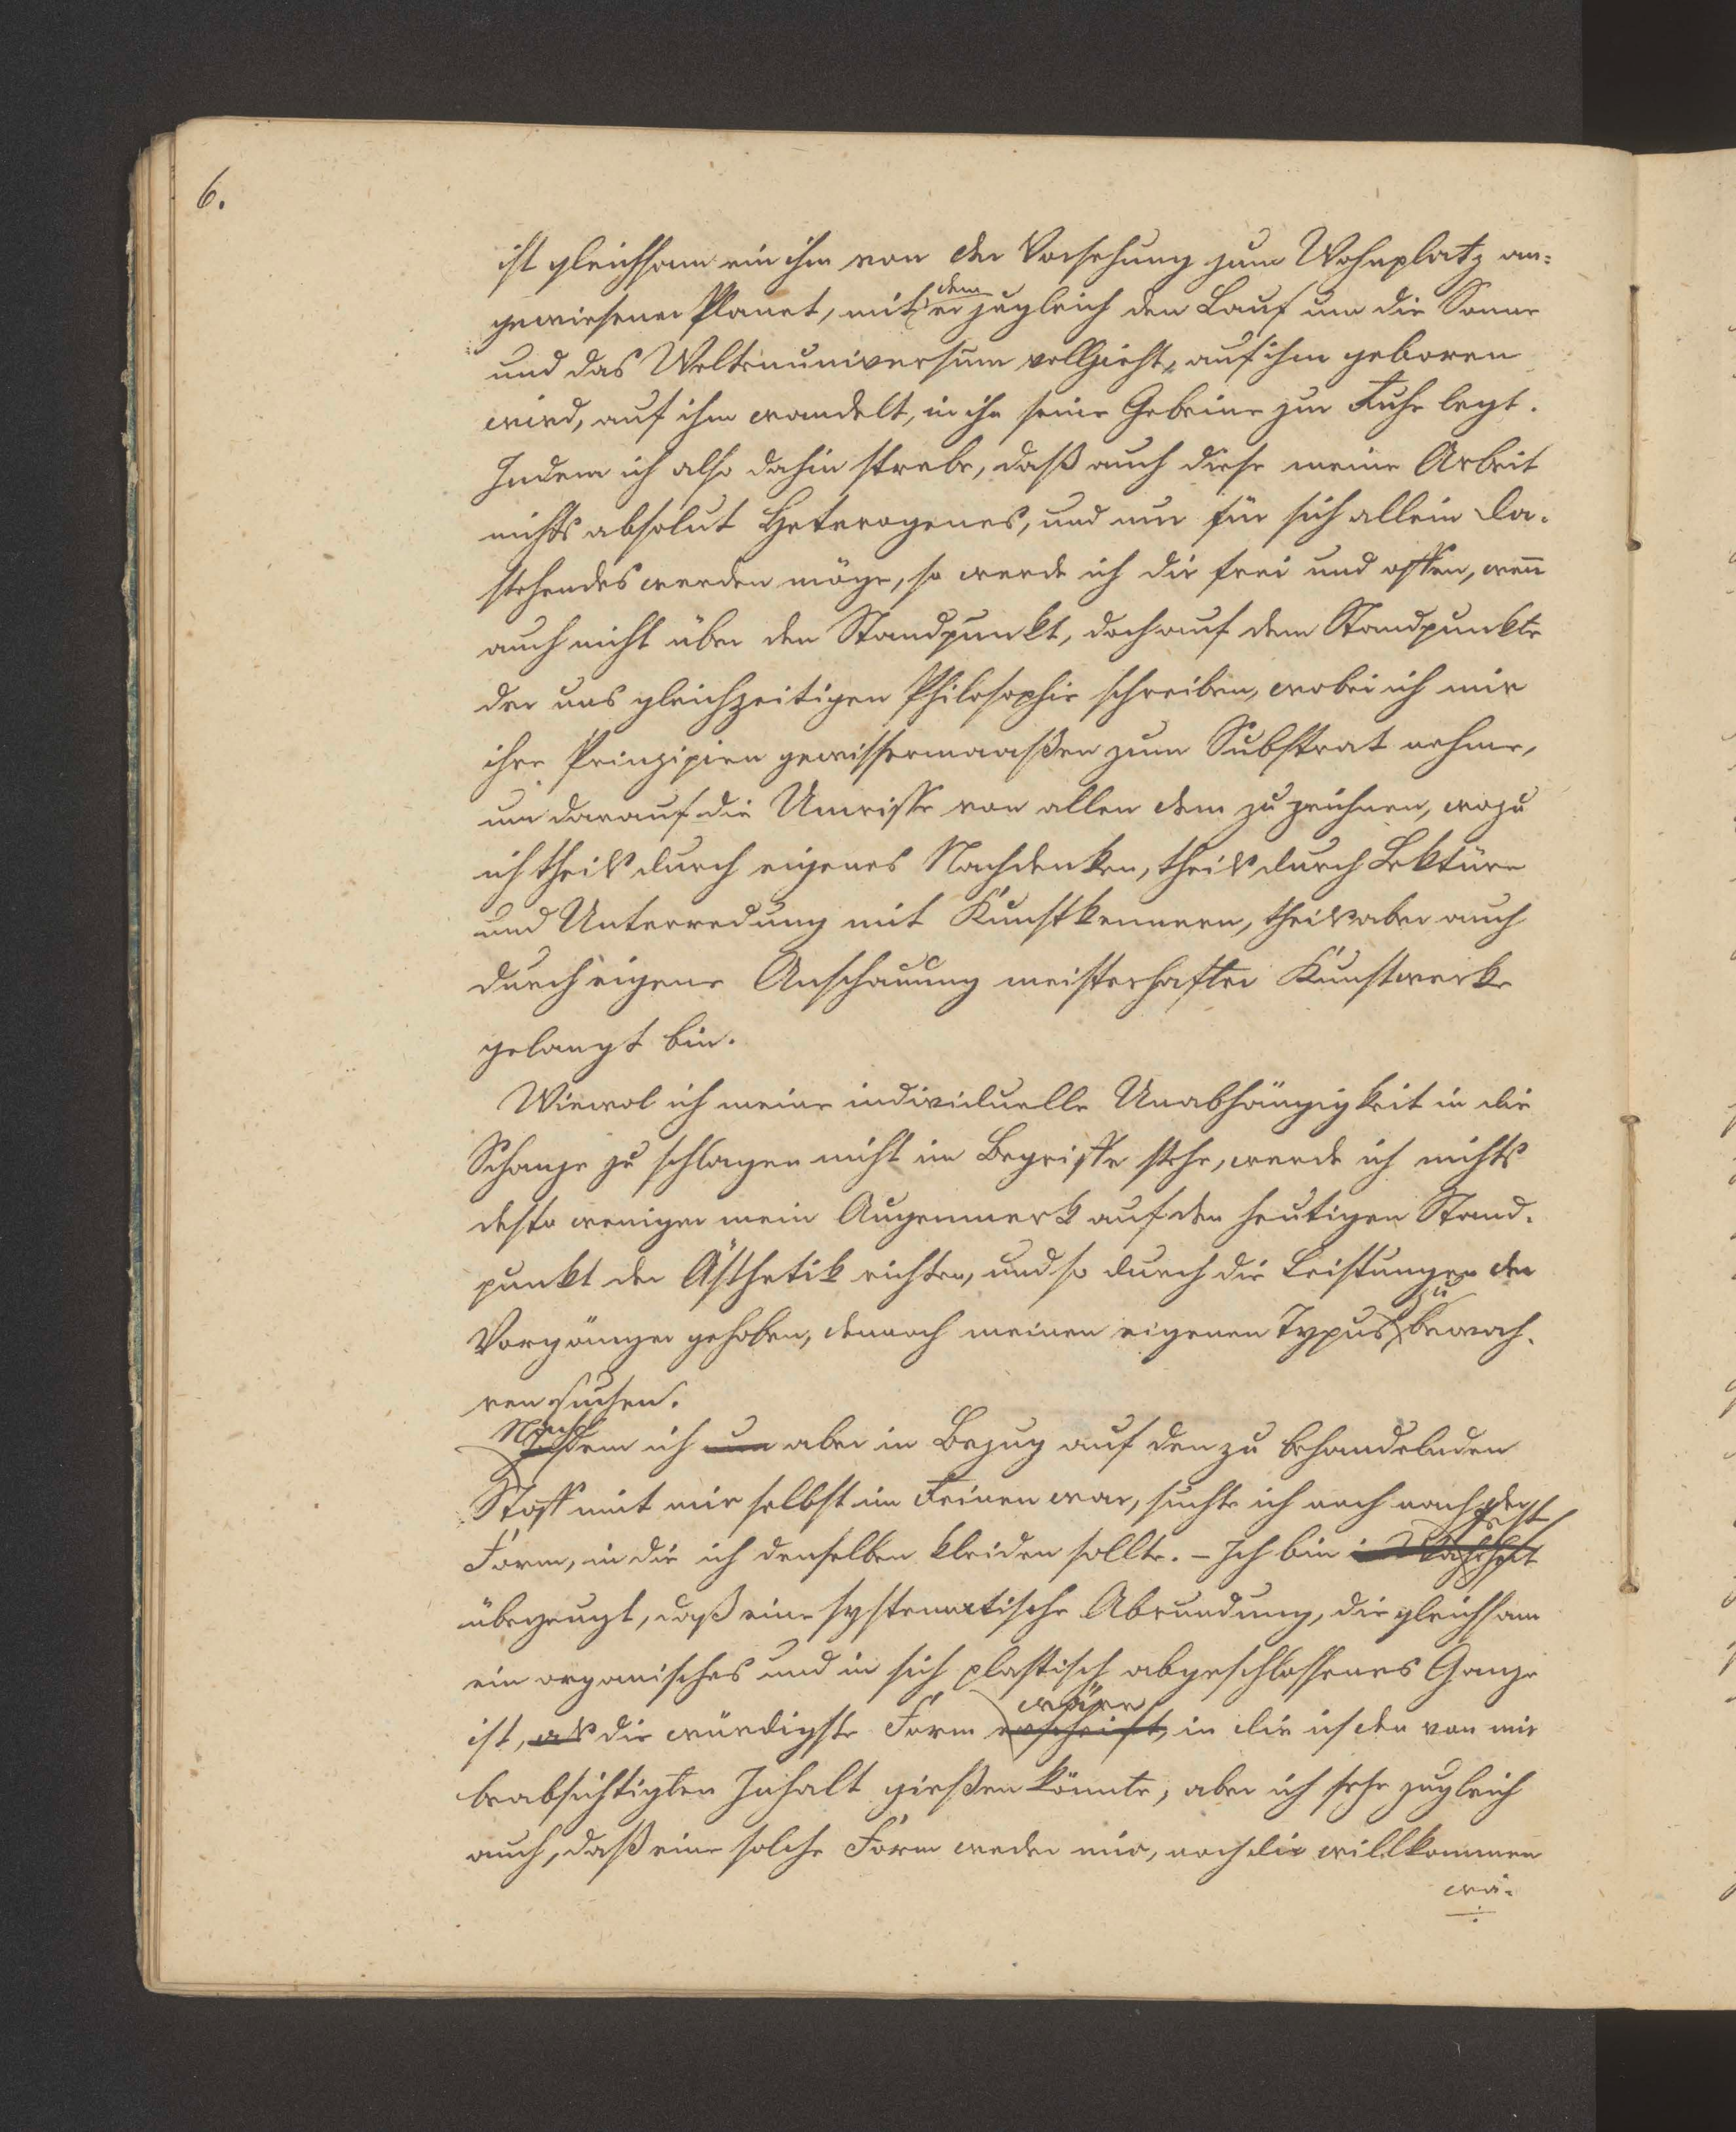 6.
ist gleichsam ein ihm von der Vorsehung zum Wohnplatz an-
gewiesener Planet, mit dem er zugleich den Lauf um die Sonne
und das Weltenuniversum vollzieht, auf ihm geboren
wird, auf ihm wandelt, in ihn seine Gebeine zur Ruhe legt.
Indem ich also dahin strebe, daß auch diese meine Arbeit
nichts absolut Heterogenes, und nur für sich allein da-
stehendes werden möge, so werde ich dir frei und offen, wenn
auch nicht über den Standpunkt, doch auf dem Standpunkte
der uns gleichzeitigen Philosophie schreiben, wobei ich mir
ihre Prinzipien gewissermaaßen zum Substrat nehme,
um darauf die Umrisse von allen dem zu zeichnen, wozu
ich theils durch eigenes Nachdenken, theils durch Lektüre
und Unterredung mit Kunstkennern, theils aber auch
durch eigene Anschauung meisterhafter Kunstwerke
gelangt bin.
Wiewol ich meine individuelle Unabhängigkeit in die
Schanze zu schlagen nicht im Begriffe stehe, werde ich nichts
desto weniger mein Augenmerk auf den heutigen Stand-
punkt der Ästhetik richten, und so durch die Leistungen der
Vorgänger gehoben, dennoch meinen eigenen Typus zu bewah-
ren suchen.
Nachdem ich nun aber in Bezug auf den zu behandelnden
Stoff mit mir selbst im Reinen war, suchte ich noch nach der
Form, in die ich denselben kleiden sollte. – Ich bin fest
überzeugt, daß eine systematische Abrundung, die gleichsam
ein organisches und in sich plastisch abgeschlossenes Ganze
ist, als die würdigste Form erscheint, wäre, in die ich den von mir
beabsichtigten Inhalt gießen könnte, aber ich sehe zugleich
auch, daß eine solche Form weder mir, noch dir willkommen
wä-